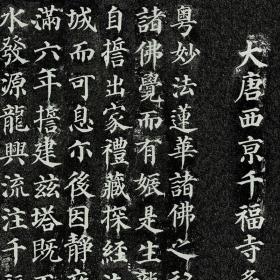 大唐西亰千福寺多
粵妙法蓮華諸佛之
諸佛覺而有娠是生
自誓出家禮藏探經
城而可息尒後因靜
滿六年誓建茲塔既
水發源龍興流注千